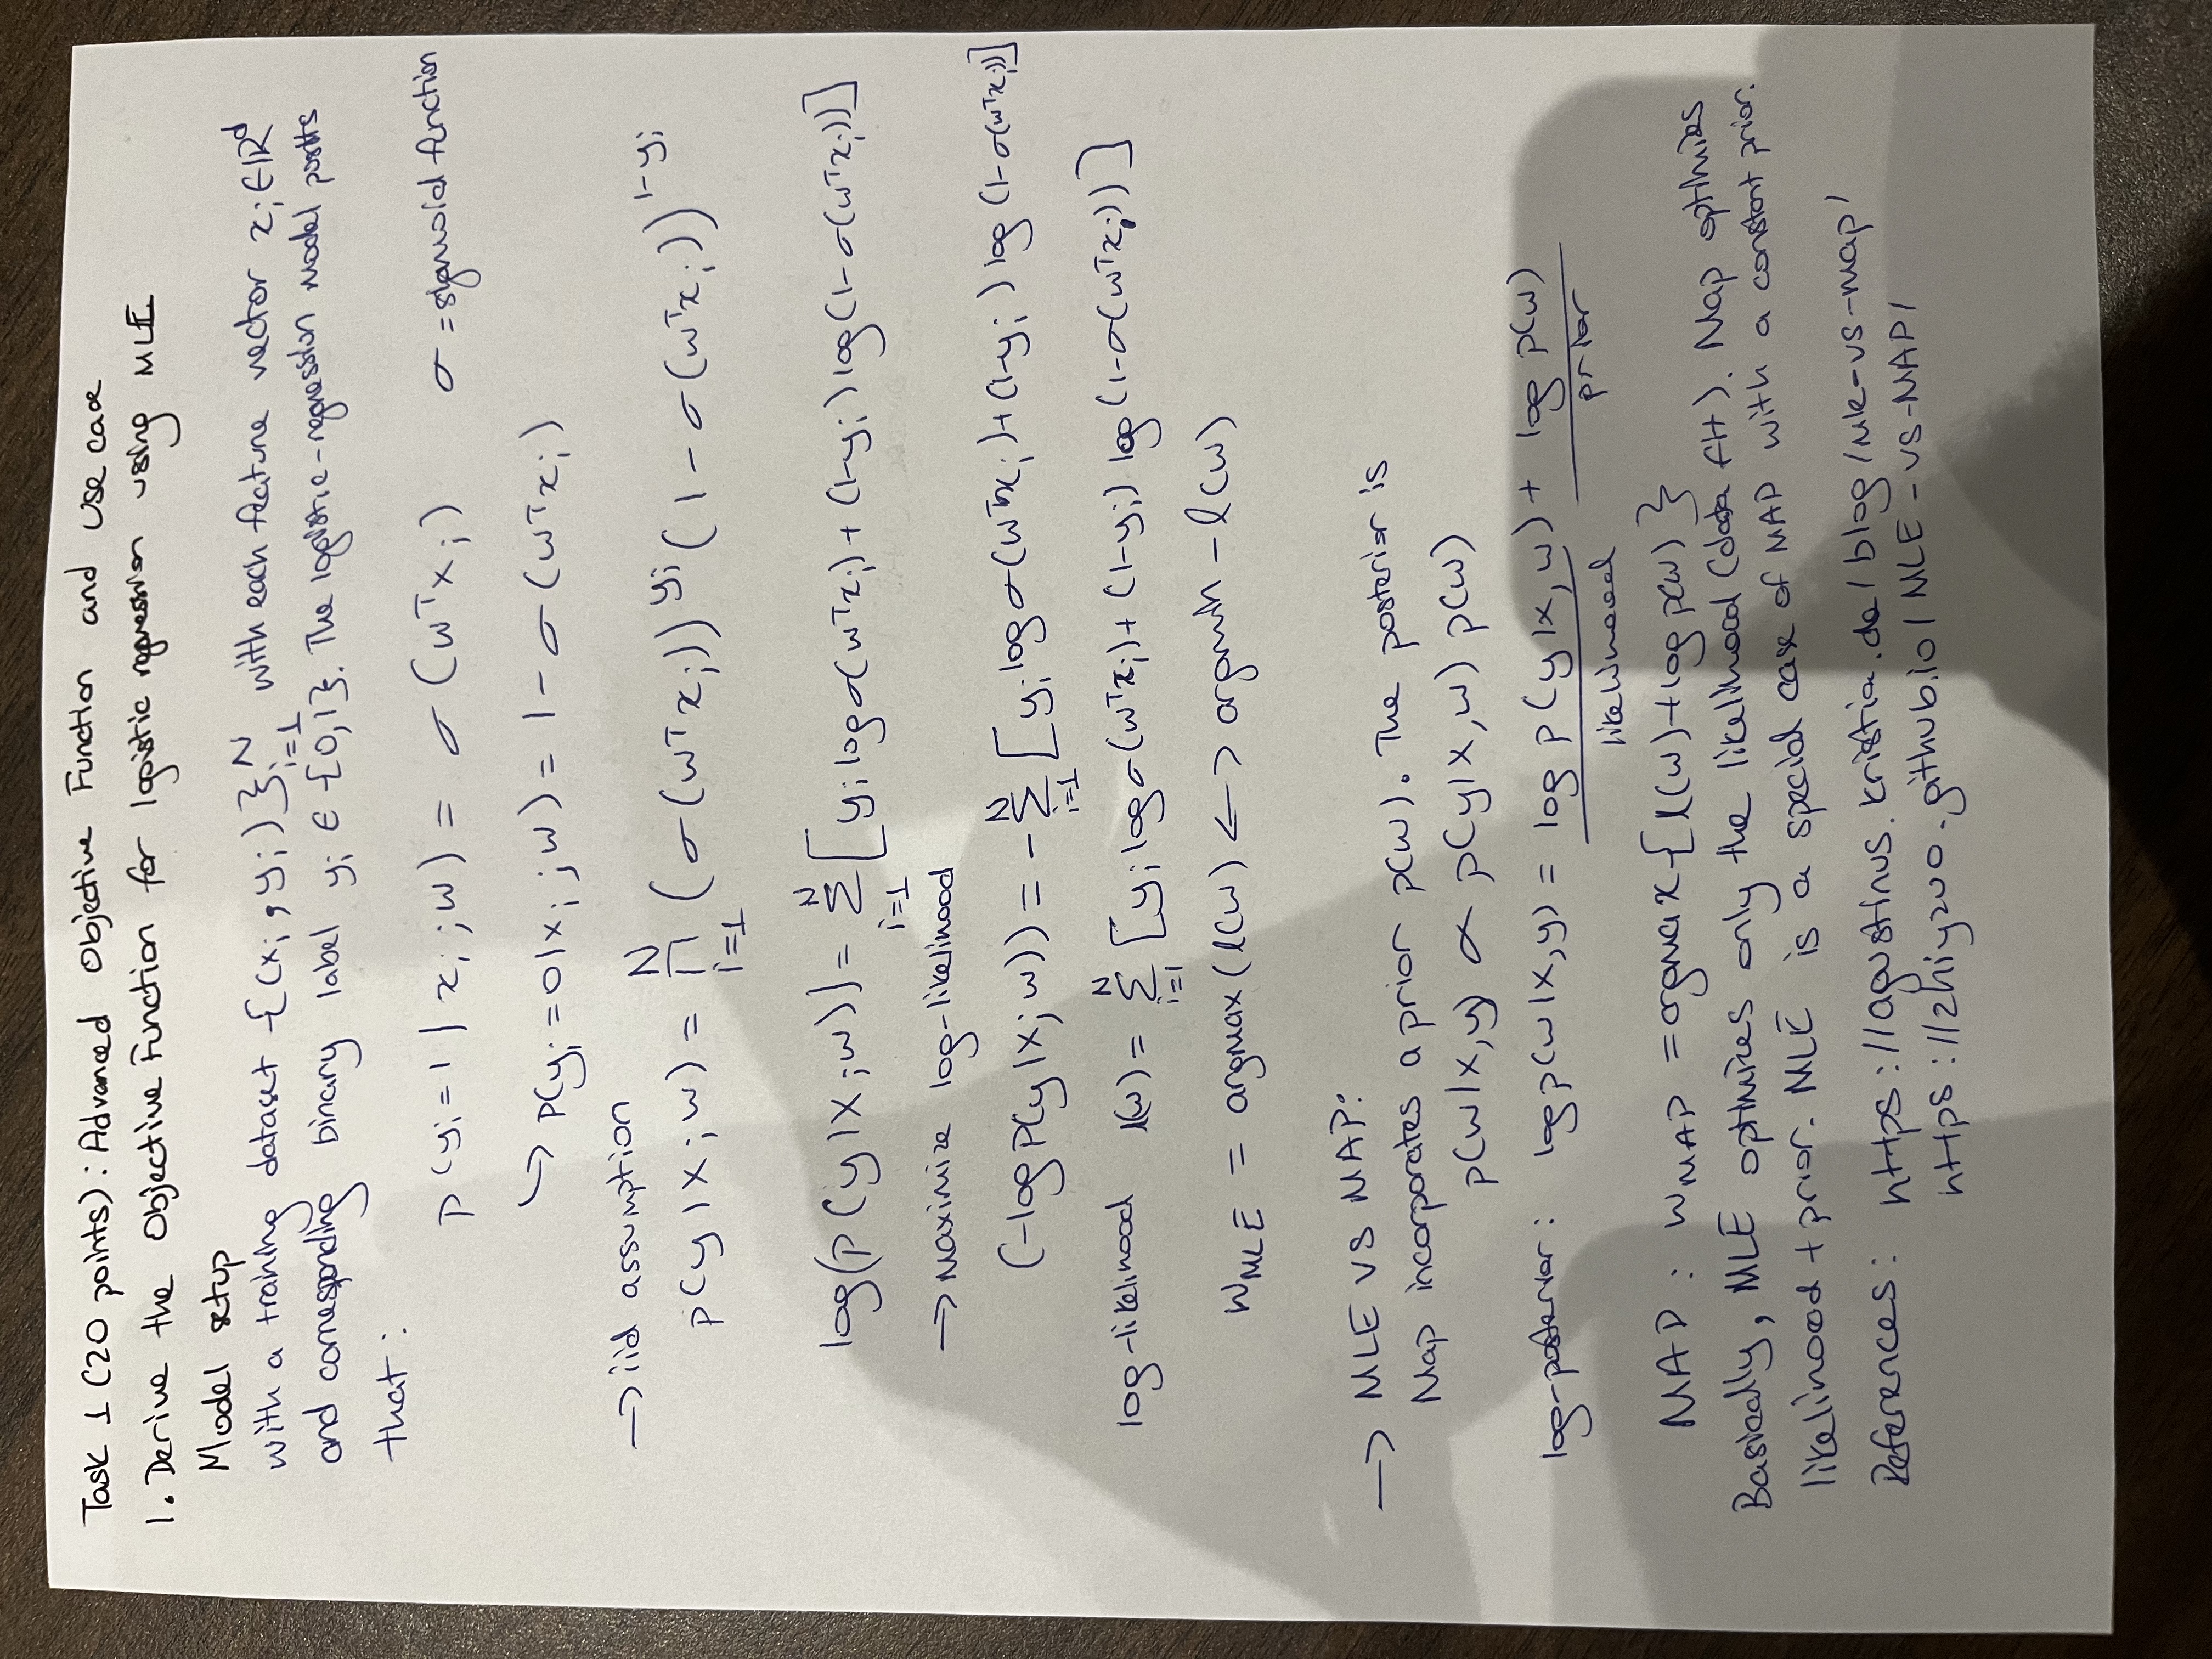 Task 1 (20 points): Advanced Objective Function and Use case
1. Derive the Objective Function for logistic regression using MLE
Model setup
with a training dataset {(x_i, y_i)}_{i=1}^N with each feature vector x_i ∈ ℝ^d
and corresponding binary label y_i ∈ {0,1}. The logistic-regression model posits
that:
p(y_i=1 | x_i ; w) = σ(w^T x_i) σ = sigmoid function
↳ P(y_i=0|x_i ; w) = 1 - σ(w^T x_i)
→ iid assumption
p(y|X;w) = ∏_{i=1}^N (σ(w^T x_i))^{y_i} (1 - σ(w^T x_i))^{1-y_i}
log(p(y|X;w)) = Σ_{i=1}^N [y_i log σ(w^T x_i) + (1-y_i) log(1-σ(w^T x_i))]
→ maximize log-likelihood
(-log P(y|X;w)) = -Σ_{i=1}^N [y_i log σ(w^T x_i) + (1-y_i) log(1-σ(w^T x_i))]
log-likelihood l(w) = Σ_{i=1}^N [y_i log σ(w^T x_i) + (1-y_i) log(1-σ(w^T x_i))]
w_MLE = argmax(l(w) <-> argmin - l(w)
→ MLE VS MAP:
Map incorporates a prior p(w). The posterior is
p(w|X,y) ∝ p(y|X,w) p(w)
log-posterior: log p(w|X,y) = log p(y|X,w) + log p(w)
likelihood prior
MAP: w_MAP = argmax{l(w)+log p(w)}
Basically, MLE optimizes only the likelihood (data fit). Map optimizes
likelihood + prior. MLE is a special case of MAP with a constant prior.
References: https://agustinus.kristia.de/blog/mle-vs-map/
https://zhiyzuo.github.io/MLE-VS-MAP/